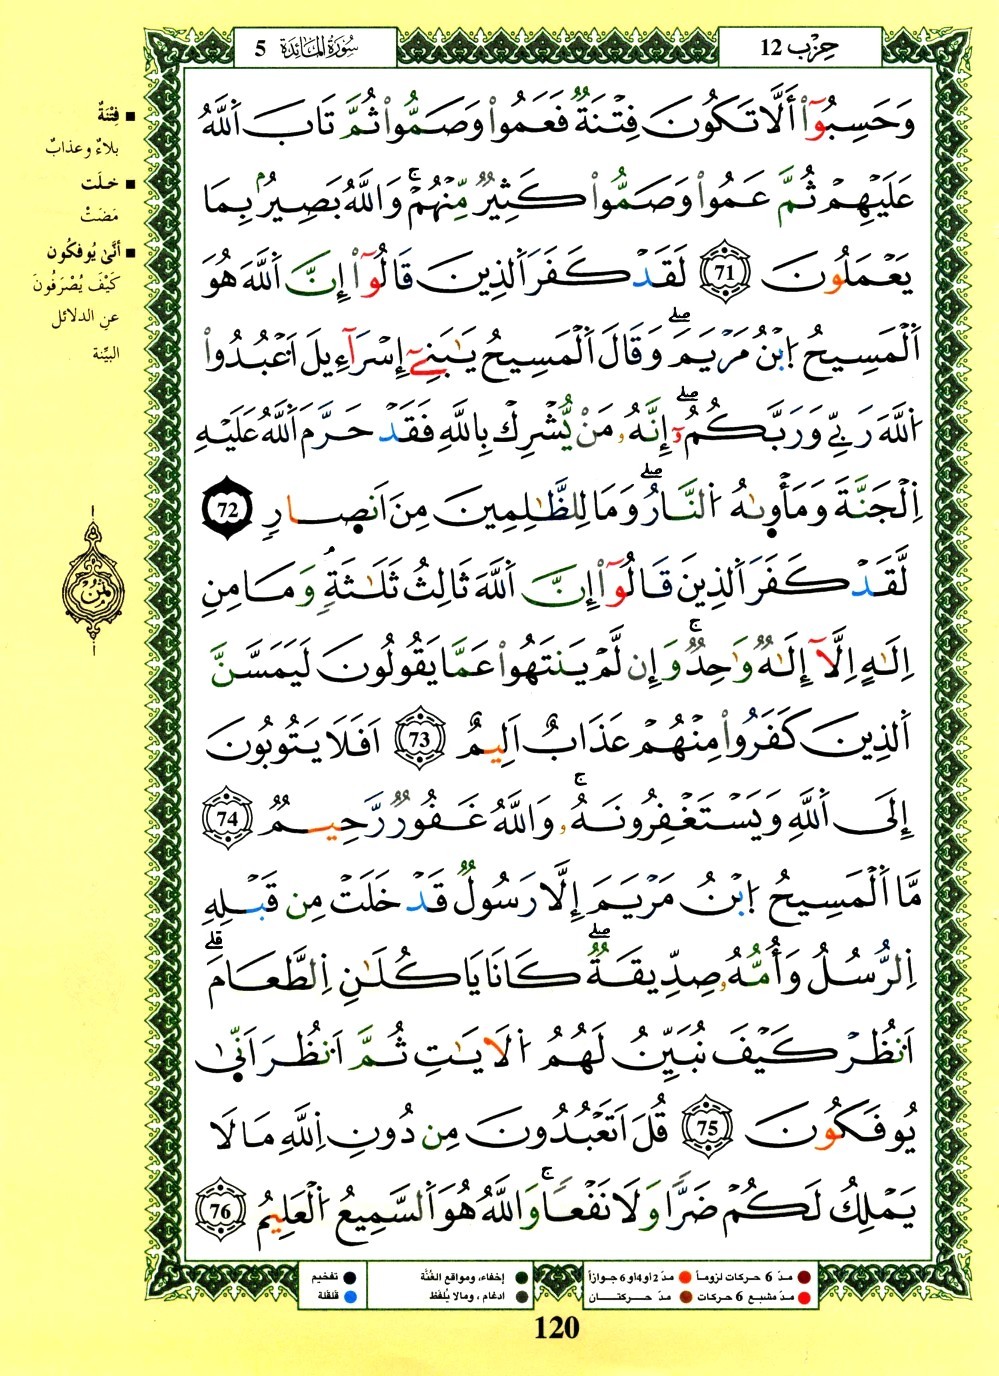 حِزْب 12
سُورَةُ المَائِدَة 5
وَحَسِبُوٓا۟ أَلَّا تَكُونَ فِتْنَةٌ فَعَمُوا۟ وَصَمُّوا۟ ثُمَّ تَابَ اَ۬للَّهُ
عَلَيْهِمْ ثُمَّ عَمُوا۟ وَصَمُّوا۟ كَثِيرٌ مِّنْهُمْۚ وَاللَّهُ بَصِيرٌۢ بِمَا
يَعْمَلُونَ 71 لَقَدْ كَفَرَ اَ۬لذِينَ قَالُوٓا۟ إِنَّ اَ۬للَّهَ هُوَ
اَ۬لْمَسِيحُ اُ۪بْنُ مَرْيَمَۖ وَقَالَ اَ۬لْمَسِيحُ يَٰبَنِےٓ إِسْرَآءِيلَ اَ۟عْبُدُوا۟
اُ۬للَّهَ رَبِّے وَرَبَّكُمُۥٓۖ إِنَّهُۥ مَنْ يُّشْرِكْ بِاللَّهِ فَقَدْ حَرَّمَ اَ۬للَّهُ عَلَيْهِ
اِ۬لْجَنَّةَ وَمَأْو۪ىٰهُ اُ۬لنَّارُۖ وَمَا لِلظَّٰلِمِينَ مِنَ اَنصٍ۪ارٍ 72
لَّقَدْ كَفَرَ اَ۬لذِينَ قَالُوٓا۟ إِنَّ اَ۬للَّهَ ثَالِثُ ثَلَٰثَةٍۘ وَمَا مِنِ
اِلَٰهٍ اِلَّآ إِلَٰهٌ وَٰحِدٌۚ وَإِن لَّمْ يَنتَهُوا۟ عَمَّا يَقُولُونَ لَيَمَسَّنَّ
اَ۬لذِينَ كَفَرُوا۟ مِنْهُمْ عَذَابٌ اَلِيمٌ 73 اَفَلَا يَتُوبُونَ
إِلَى اَ۬للَّهِ وَيَسْتَغْفِرُونَهُۥۚ وَاللَّهُ غَفُورٌ رَّحِيمٌ 74
مَّا اَ۬لْمَسِيحُ اُ۪بْنُ مَرْيَمَ إِلَّا رَسُولٌ قَدْ خَلَتْ مِن قَبْلِهِ
اِ۬لرُّسُلُ وَأُمُّهُۥ صِدِّيقَةٌۖ كَانَا يَاكُلَٰنِ اِ۬لطَّعَامَۗ
اَ۟نظُرْ كَيْفَ نُبَيِّنُ لَهُمُ اُ۬لَايَٰتِ ثُمَّ اَ۟نظُرَ اَنّ۪ىٰ
يُوفَكُونَ 75 قُلَ اَتَعْبُدُونَ مِن دُونِ اِ۬للَّهِ مَا لَا
يَمْلِكُ لَكُمْ ضَرًّا وَلَا نَفْعًاۚ وَاللَّهُ هُوَ اَ۬لسَّمِيعُ اُ۬لْعَلِيمُ 76
فِتْنَةٌ
بلاءٌ وعذابٌ
خلَت
مَضَتْ
أنّى يُوفكُون
كَيْفَ يُصْرَفُونَ
عنِ الدلائل
البيِّنة
ثُمُن
مدّ 6 حركات لزوماً
مدّ 2 أو 4 أو 6 جوازاً
إخفاء، ومواقع الغُنَّة
تفخيم
مدّ مشبع 6 حركات
مدّ حركتــان
ادغام، ومالا يُلفَظ
قلقلة
120